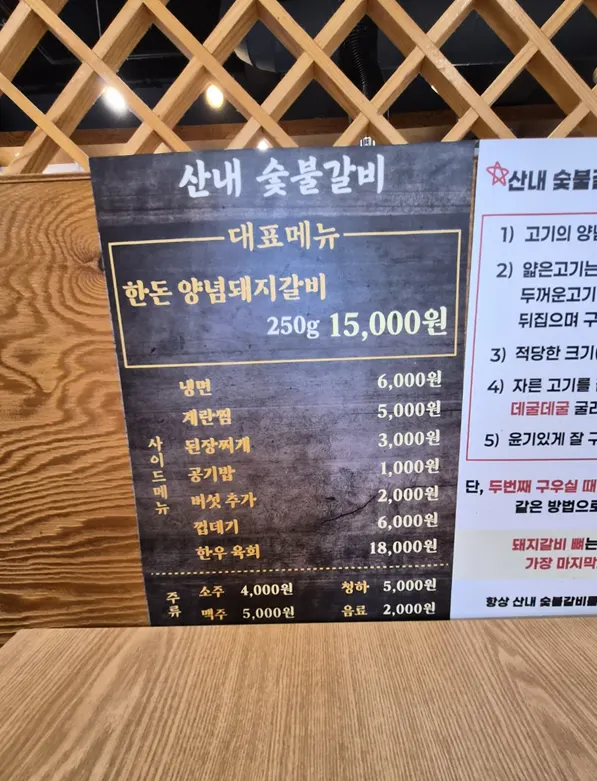 산내 숯불갈비
대표메뉴
한돈 양념돼지갈비
250g 15,000원
사이드메뉴
냉면 6,000원
계란찜 5,000원
된장찌개 3,000원
공기밥 1,000원
버섯 추가 2,000원
껍데기 6,000원
한우 육회 18,000원
주류
소주 4,000원 청하 5,000원
맥주 5,000원 음료 2,000원
산내 숯불
1) 고기의 양념
2) 얇은고기는
두꺼운고기
뒤집으며 구
3) 적당한 크기
4) 자른 고기를
데굴데굴 굴
5) 윤기있게 잘 구
단, 두번째 구우실 때
같은 방법으로
돼지갈비 뼈는
가장 마지막
항상 산내 숯불갈비를